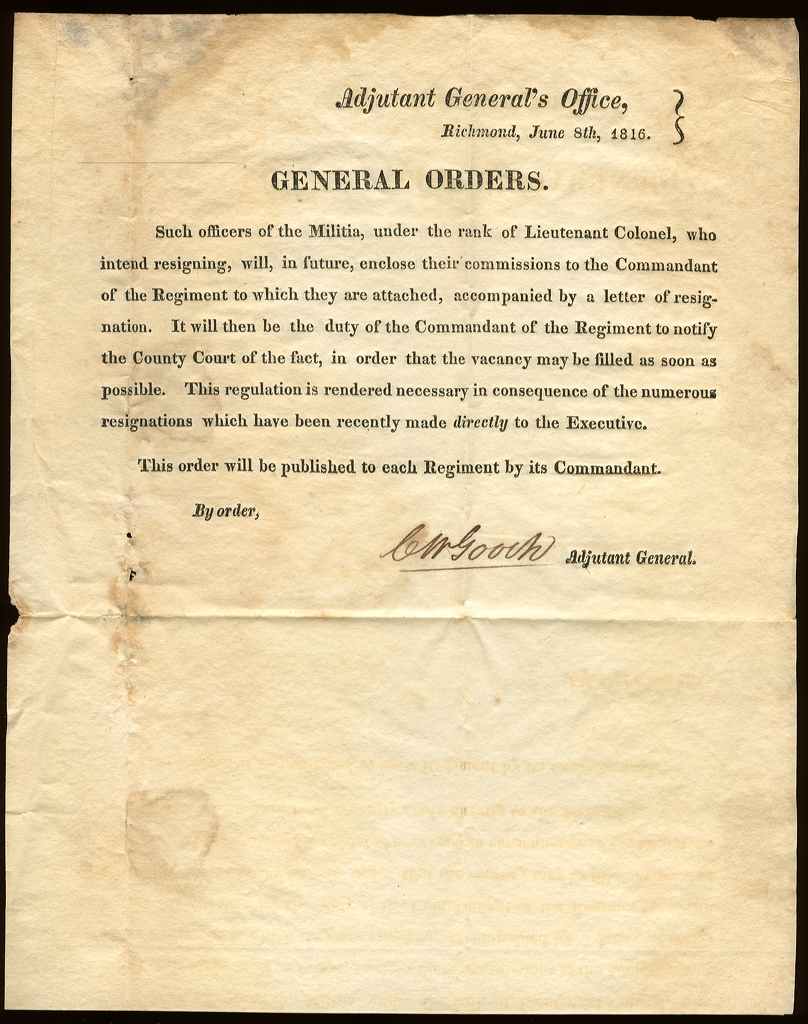 Adjutant General's Office,
Richmond, June 8th, 1816.
GENERAL ORDERS.
Such officers of the Militia, under the rank of Lieutenant Colonel, who
intend resigning, will, in future, enclose their commissions to the Commandant
of the Regiment to which they are attached, accompanied by a letter of resig-
nation. It will then be the duty of the Commandant of the Regiment to notify
the County Court of the fact, in order that the vacancy may be filled as soon as
possible. This regulation is rendered necessary in consequence of the numerous
resignations which have been recently made directly to the Executive.
This order will be published to each Regiment by its Commandant.
By order,
C W Gooch Adjutant General.